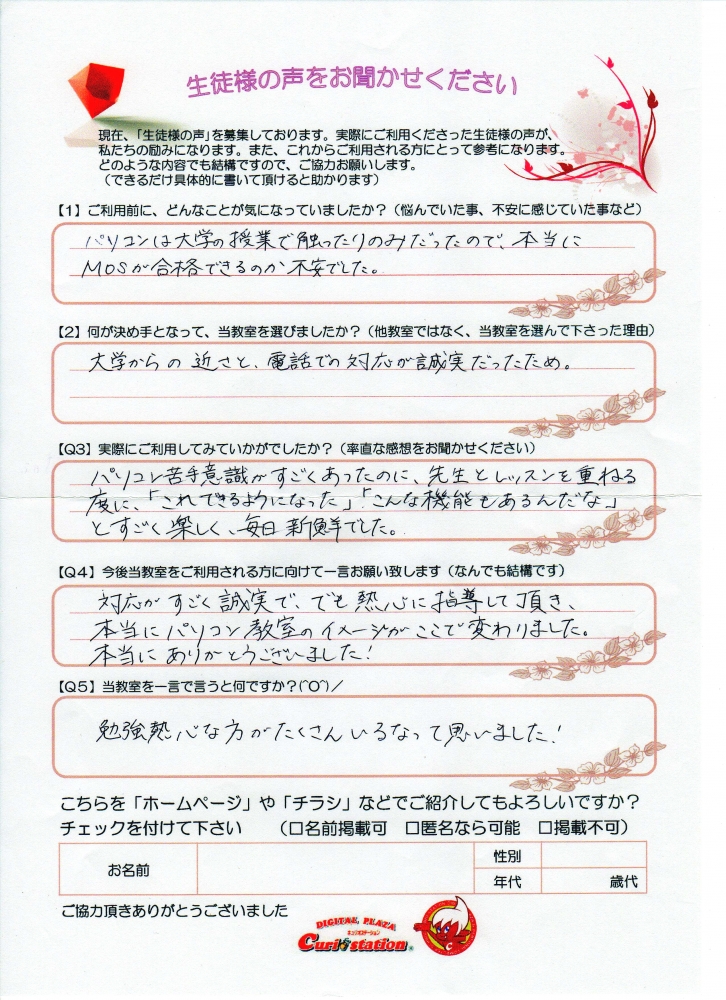 生徒様の声をお聞かせください
現在、「生徒様の声」を募集しております。実際にご利用くださった生徒様の声が、
私たちの励みになります。また、これからご利用される方にとって参考になります。
どのような内容でも結構ですので、ご協力お願いします。
（できるだけ具体的に書いて頂けると助かります）
【1】ご利用前に、どんなことが気になっていましたか？（悩んでいた事、不安に感じていた事など）
パソコンは大学の授業で触ったりのみだったので、本当に
MOSが合格できるのか不安でした。
【2】何が決め手となって、当教室を選びましたか？（他教室ではなく、当教室を選んで下さった理由）
大学からの近さと、電話での対応が誠実だったため。
【Q3】実際にご利用してみていかがでしたか？（率直な感想をお聞かせください）
パソコン苦手意識がすごくあったのに、先生とレッスンを重ねる
度に、「これできるようになった」「こんな機能もあるんだな」
とすごく楽しく、毎日新鮮でした。
【Q4】今後当教室をご利用される方に向けて一言お願い致します（なんでも結構です）
対応がすごく誠実で、でも熱心に指導して頂き、
本当にパソコン教室のイメージがここで変わりました。
本当にありがとうございました！
【Q5】当教室を一言で言うと何ですか？(^O^)／
勉強熱心な方がたくさんいるなって思いました！
こちらを「ホームページ」や「チラシ」などでご紹介してもよろしいですか？
チェックを付けて下さい　（□名前掲載可　□匿名なら可能　□掲載不可）
お名前
性別
年代　歳代
ご協力頂きありがとうございました
DIGITAL PLAZA
キュリオステーション
Curio station